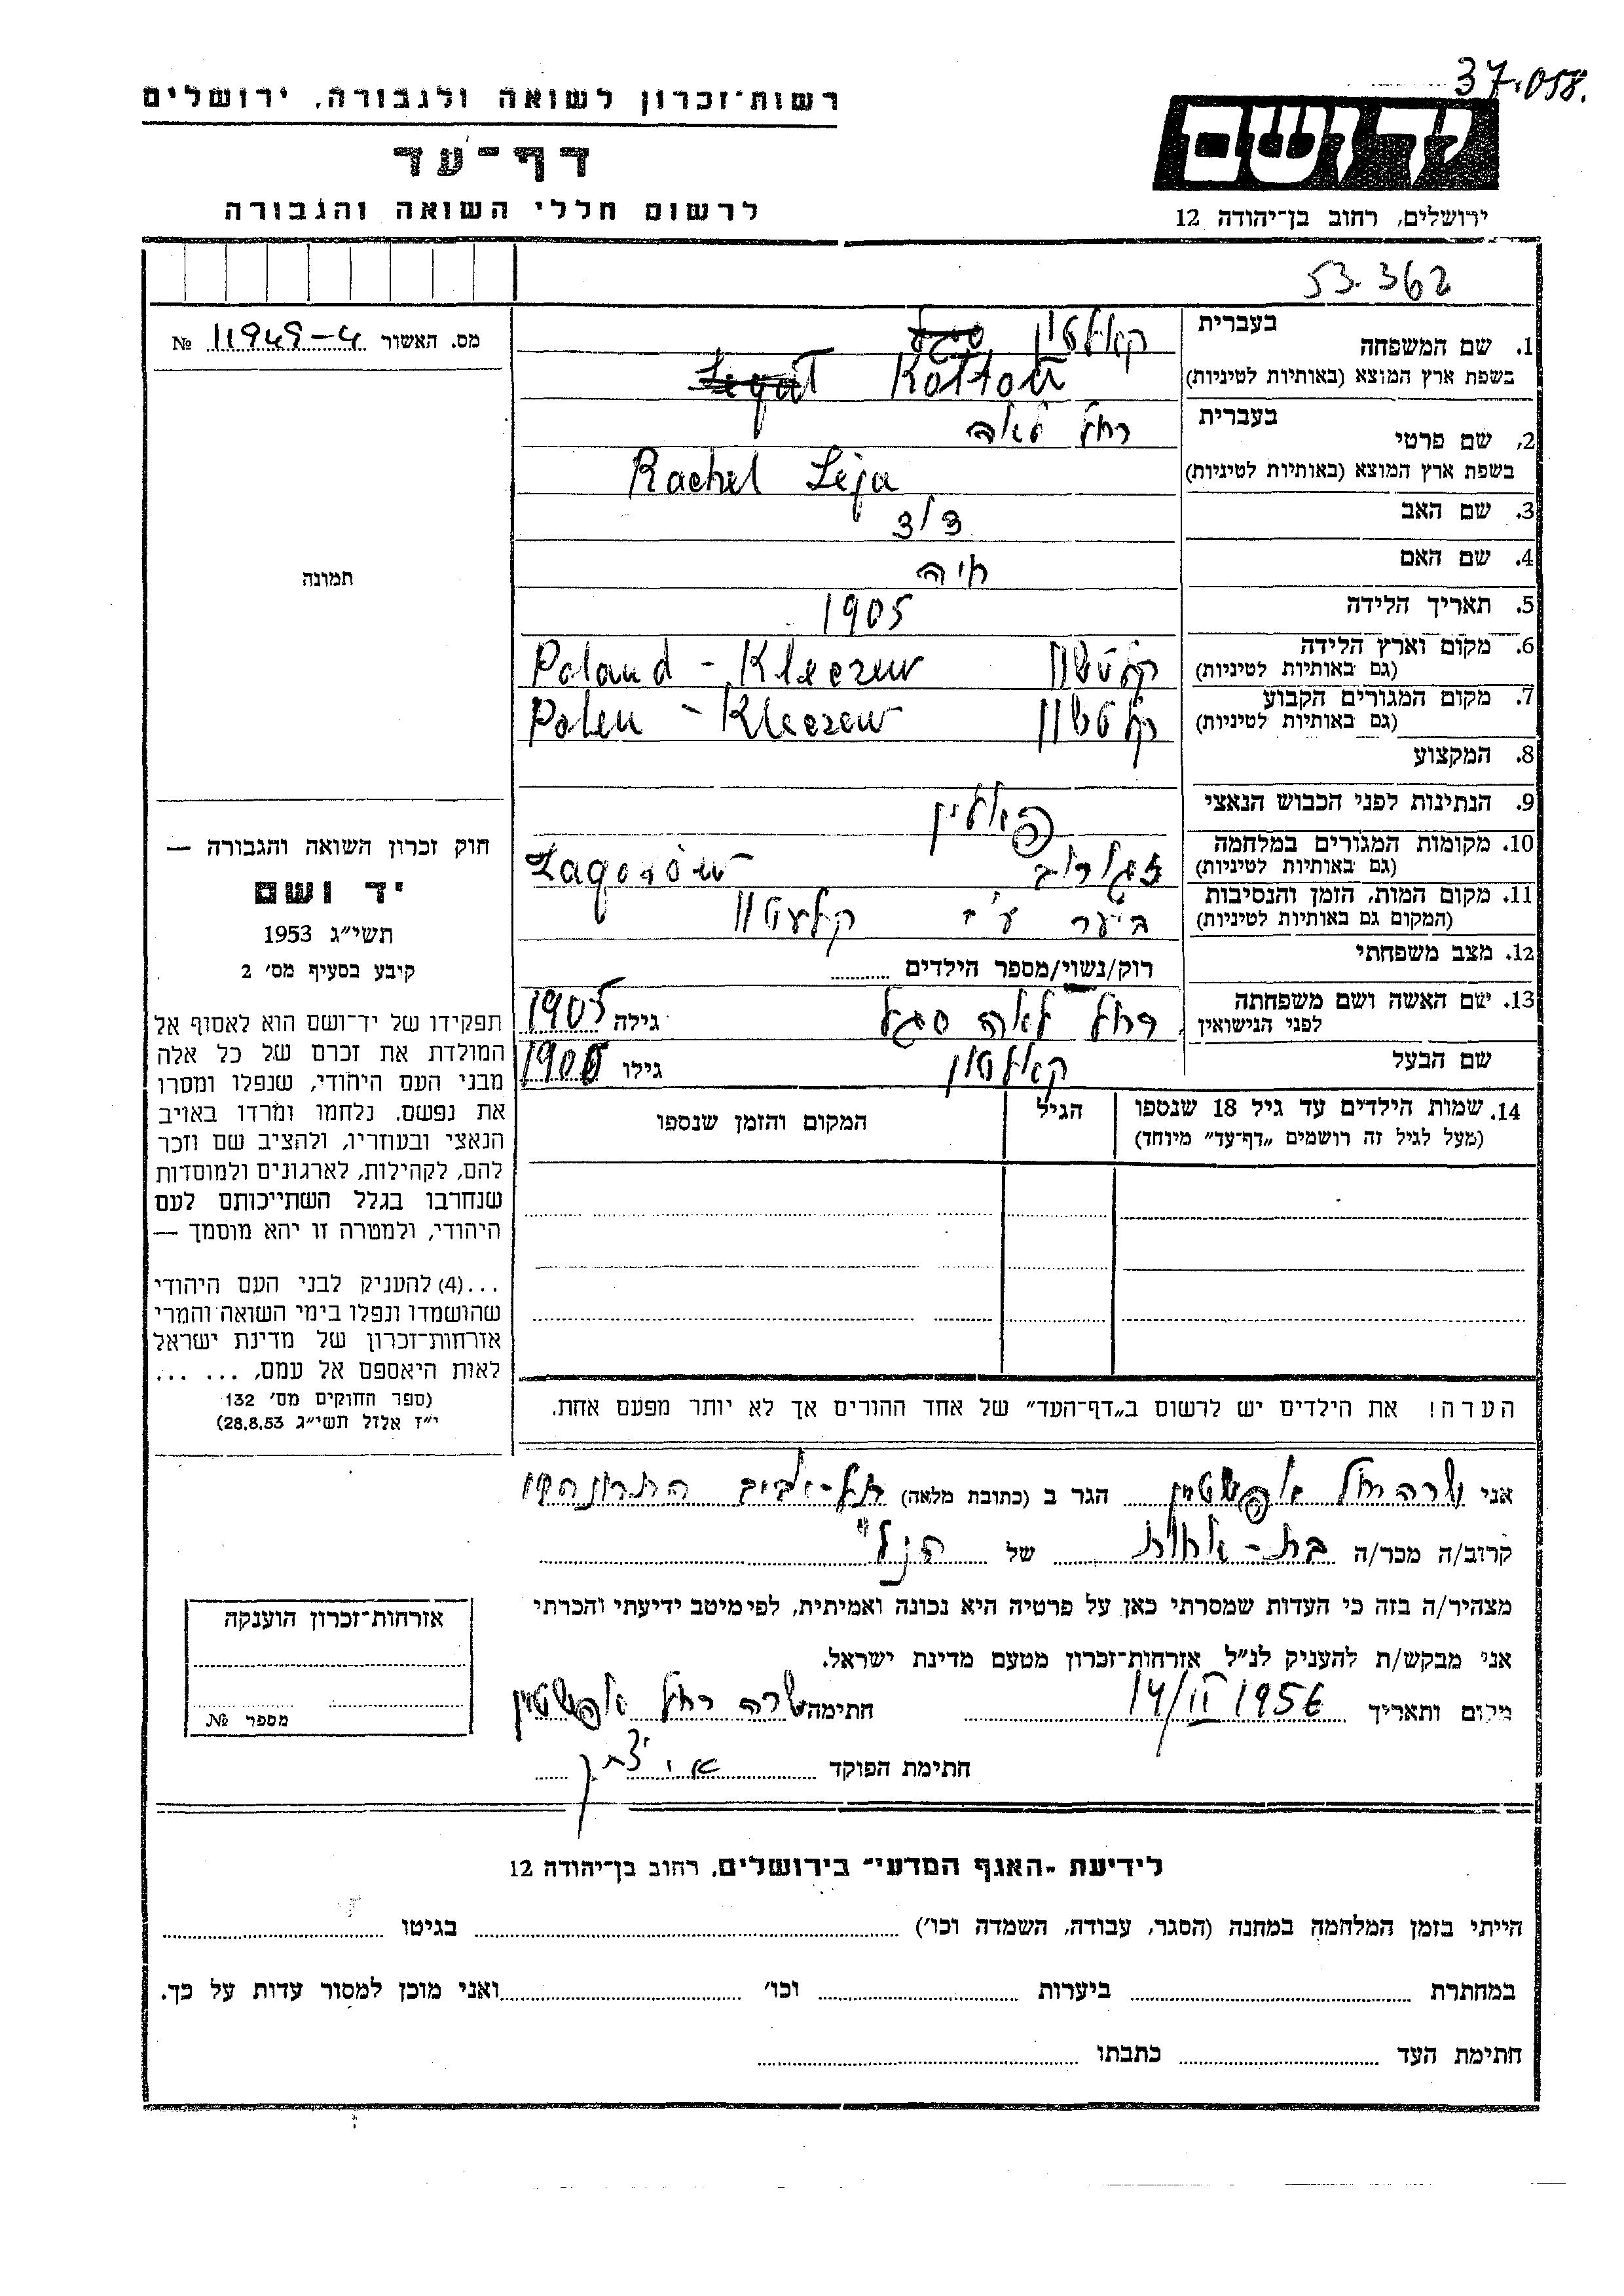 37.058.
רשות־זכרון לשואה ולגבורה, ירושלים
ידושם
דף־עד
לרשום חללי השואה והגבורה
ירושלים, רחוב בן־יהודה 12
53.362
מס. האשור 11949-4 №
1. שם המשפחה
בעברית
קאלטון סגל
בשפת ארץ המוצא (באותיות לטיניות)
Kołtoń
2. שם פרטי
בעברית
רחל לאה
בשפת ארץ המוצא (באותיות לטיניות)
Rachel Leja
3. שם האב
4. שם האם חיה
5. תאריך הלידה 1905
6. מקום וארץ הלידה
(גם באותיות לטיניות)
Poland - Kleczew
7. מקום המגורים הקבוע
(גם באותיות לטיניות)
Polen - Kleczew
8. המקצוע
9. הנתינות לפני הכבוש הנאצי פולין
10. מקומות המגורים במלחמה
(גם באותיות לטיניות)
זגורוב Zagorów
11. מקום המות, הזמן והנסיבות
(המקום גם באותיות לטיניות)
ביער ע"י
12. מצב משפחתי
רוק/נשוי/מספר הילדים ..........
13. שם האשה ושם משפחתה
לפני הנישואין
רחל לאה סגל גילה 1905
שם הבעל קאלטון גילו
14. שמות הילדים עד גיל 18 שנספו
(מעל לגיל זה רושמים „דף־עד" מיוחד)
הגיל
המקום והזמן שנספו
הערה! את הילדים יש לרשום ב„דף־העד" של אחד ההורים אך לא יותר מפעם אחת.
תמונה
חוק זכרון השואה והגבורה —
יד ושם
תשי"ג 1953
קיבע בסעיף מס׳ 2
תפקידו של יד־ושם הוא לאסוף אל
המולדת את זכרם של כל אלה
מבני העם היהודי, שנפלו ומסרו
את נפשם. נלחמו ומרדו באויב
הנאצי ובעוזריו, ולהציב שם וזכר
להם, לקהילות, לארגונים ולמוסדות
שנחרבו בגלל השתייכותם לעם
היהודי, ולמטרה זו יהא מוסמך —
...(4) להעניק לבני העם היהודי
שהושמדו ונפלו בימי השואה והמרי
אזרחות־זכרון של מדינת ישראל
לאות היאספם אל עמם, ... ...
(ספר החוקים מס׳ 132
י"ז אלול תשי"ג 28.8.53)
אני שרה רחל אפשטין הגר ב (כתובת מלאה) תל-אביב
קרוב/ה מכר/ה בת-אחות של הנ"ל
מצהיר/ה בזה כי העדות שמסרתי כאן על פרטיה היא נכונה ואמיתית, לפי מיטב ידיעתי והכרתי
אני מבקש/ת להעניק לנ"ל אזרחות־זכרון מטעם מדינת ישראל.
מקום ותאריך 14/II 1956 חתימה שרה רחל אפשטין
חתימת הפוקד
אזרחות־זכרון הוענקה
מספר №
לידיעת „האגף המדעי" בירושלים, רחוב בן־יהודה 12
הייתי בזמן המלחמה במחנה (הסגר, עבודה, השמדה וכו׳) בגיטו
במחתרת ביערות וכו׳ ואני מוכן למסור עדות על כך.
חתימת העד כתבתו